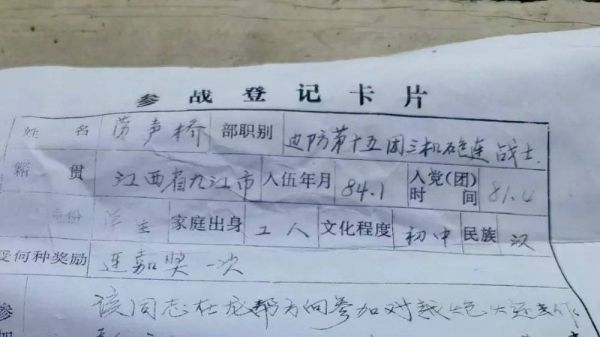 参战登记卡片
姓名 声桥 部职别 边防第十五团三机炮连战士
籍贯 江西省九江市 入伍年月 84.1 入党(团)时间 81.4
学生 家庭出身 工人 文化程度 初中 民族 汉
受何种奖励 连嘉奖一次
参 该同志在 方向参加对越
加